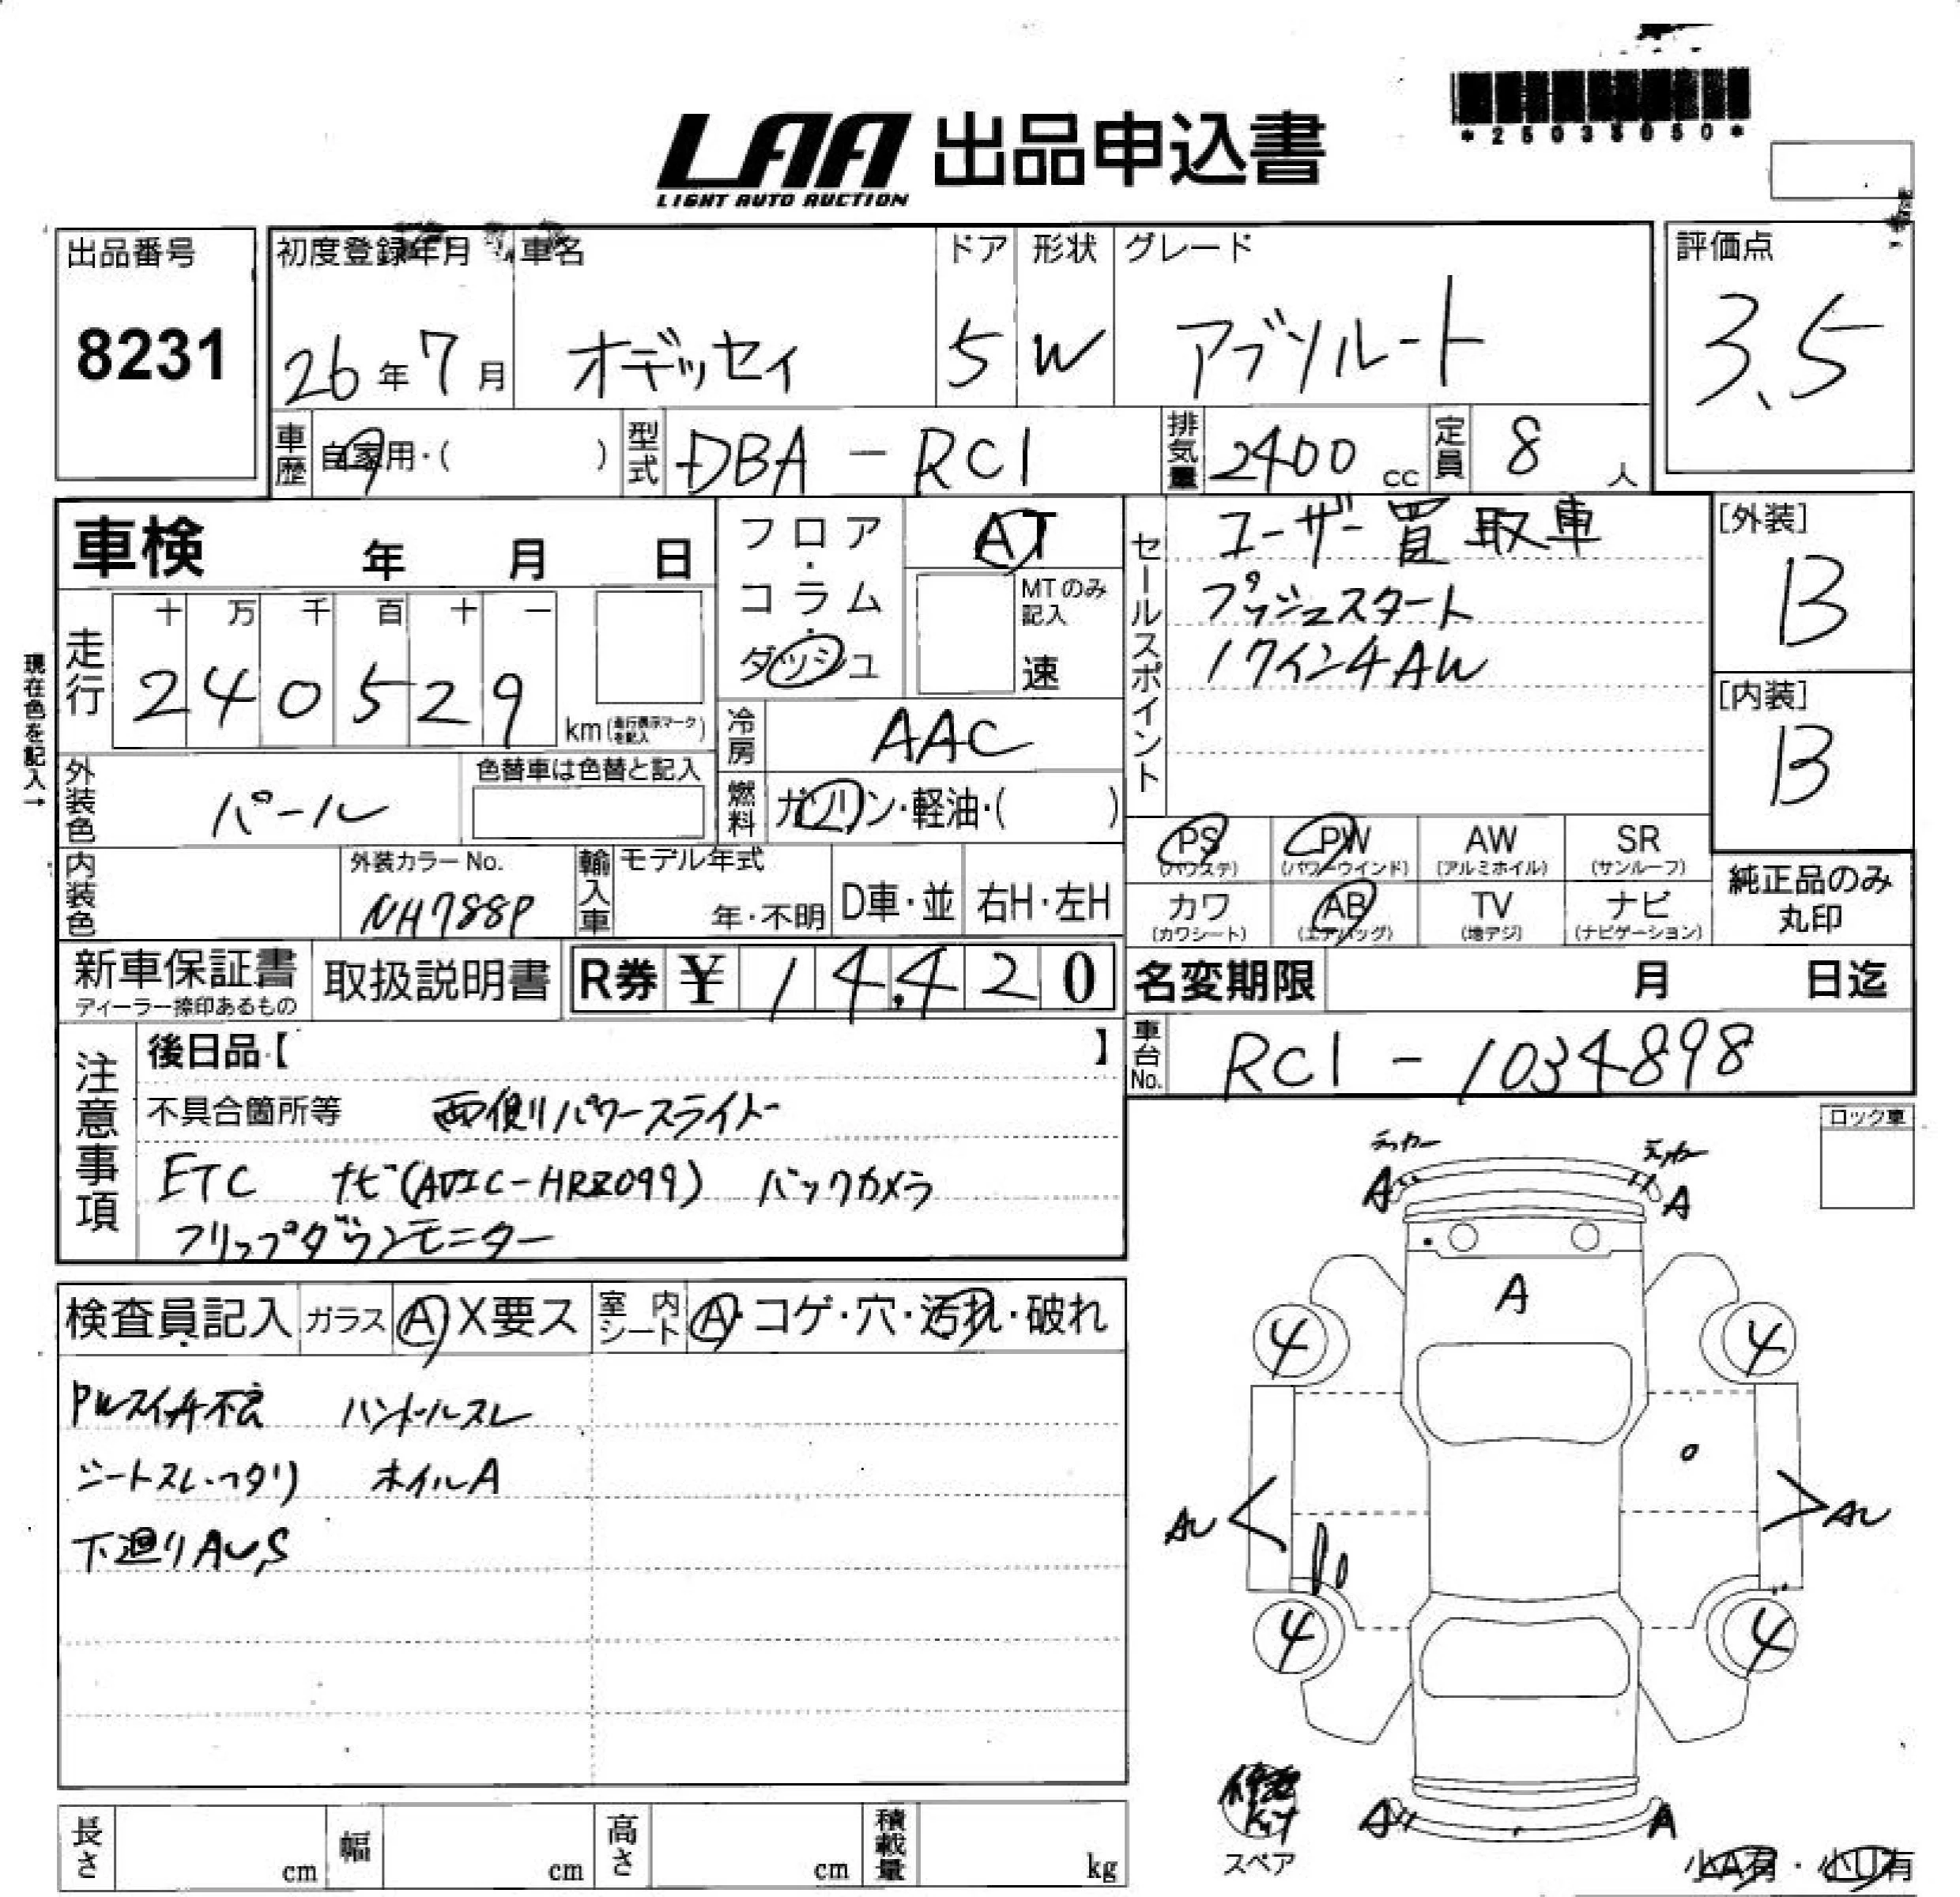 *25038060*
LAA 出品申込書
LIGHT AUTO AUCTION
出品番号
8231
初度登録年月
26年7月
車名
オデッセイ
ドア
5
形状
W
グレード
アブソルート
評価点
3.5
車歴
自家用・( )
型式
DBA-RC1
排気量
2400 cc
定員
8 人
車検 年 月 日
フロア・コラム・ダッシュ
AT
MTのみ記入
速
セールスポイント
ユーザー買取車
プッシュスタート
17インチAW
[外装]
B
[内装]
B
現在色を記入→
走行
十 万 千 百 十 一
2 4 0 5 2 9
km(走行表示マークを記入)
冷房
AAC
外装色
パール
色替車は色替と記入
燃料
ガソリン・軽油・( )
内装色
外装カラーNo.
NH788P
輸入車
モデル年式
年・不明
D車・並
右H・左H
PS
(パワステ)
PW
(パワーウインド)
AW
(アルミホイル)
SR
(サンルーフ)
カワ
(カワシート)
AB
(エアバッグ)
TV
(地デジ)
ナビ
(ナビゲーション)
純正品のみ
丸印
新車保証書
ディーラー捺印あるもの
取扱説明書
R券 ¥ 14,420
名変期限 月 日迄
車台No.
RC1-1034898
注意事項
後日品【 】
不具合箇所等 両側パワースライドー
ETC ナビ(AVIC-HRZ099) バックカメラ
フリップダウンモニター
検査員記入
ガラス
A X要ス
室内シート
A・コゲ・穴・汚れ・破れ
PWスイッチ不良 ハンドルスレ
シートスレ・ヘタリ ホイルA
下廻りAU,S
ロック車
A A
A
4 4
AU AU
4 4
A A
修理
Kit
スペア
小A有・小U有
長さ cm
幅 cm
高さ cm
積載量 kg